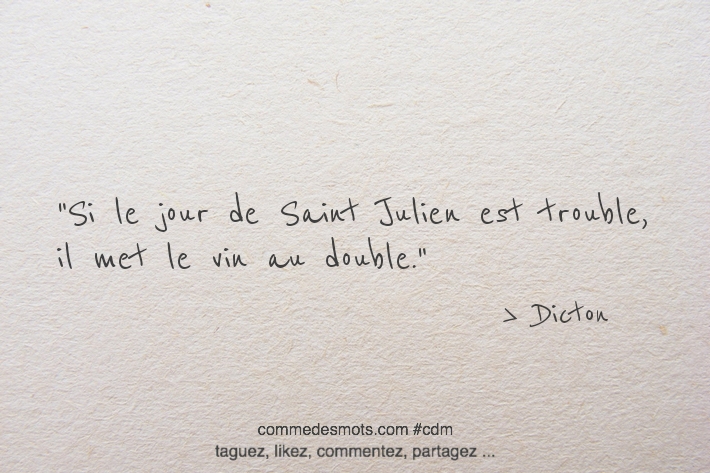 "Si le jour de Saint Julien est trouble,
il met le vin au double."
> Dicton
commedesmots.com #cdm
taguez, likez, commentez, partagez ...